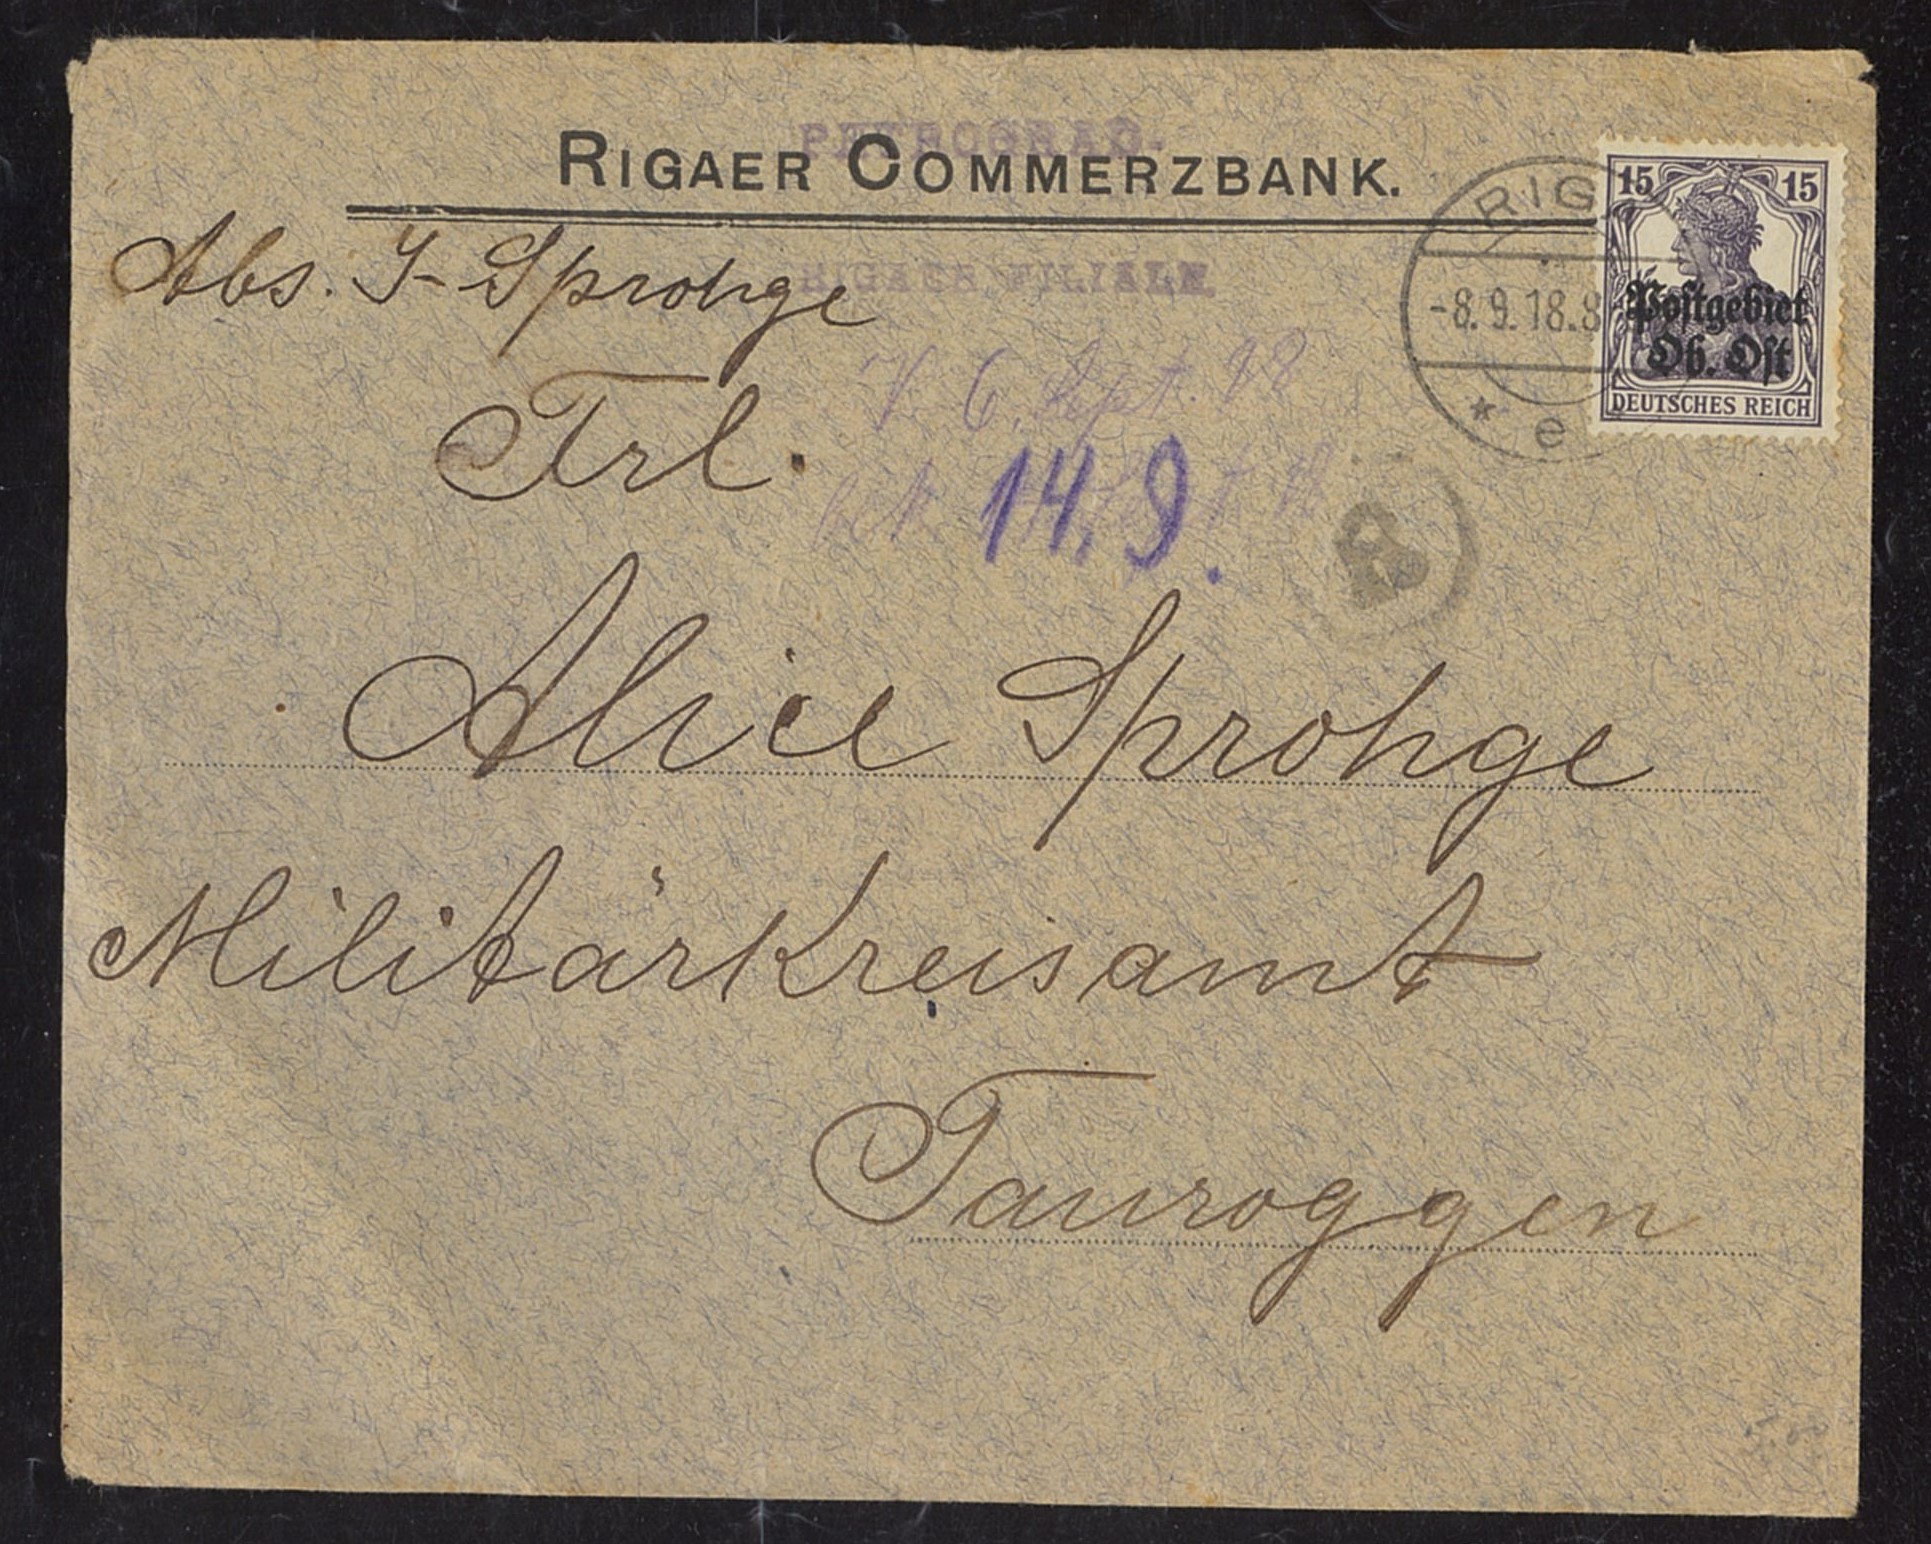 PETROGRAD.
RIGAER COMMERZBANK.
RIGAER FILIALE.
Abs. J- Sprohge
V. 6. Sept. 18
14. 9.
Frl.
Alice Sprohge
Militärkreisamt
Tauroggen
RIGA
-8.9.18.8
* e
15 15
Postgebiet
Ob. Ost
DEUTSCHES REICH
5.00